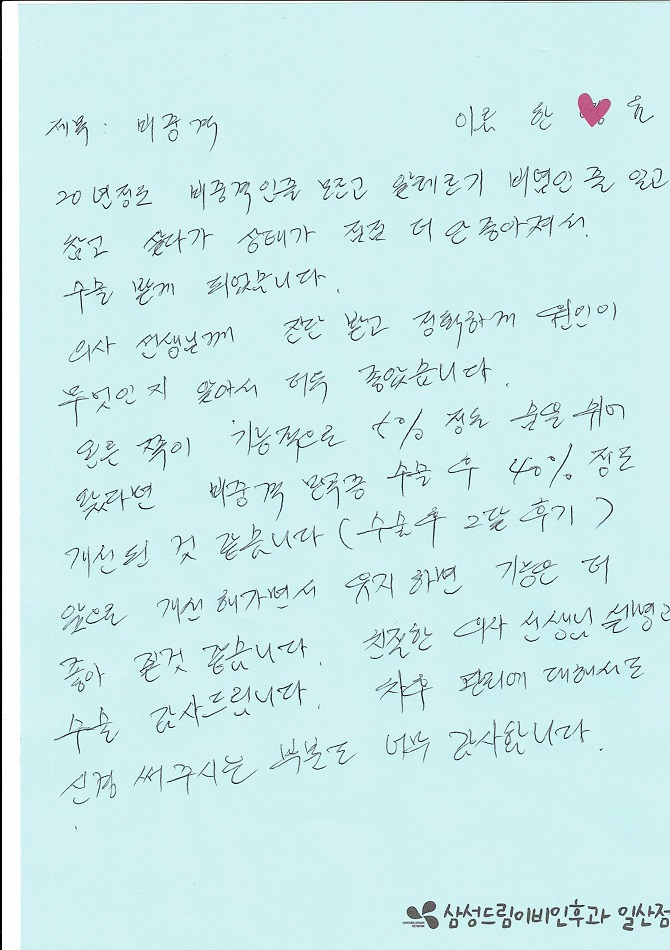 제목: 비중격 이름 한 흠
20년정도 비중격인줄 모르고 알레르기 비염인 줄 알고
참고 살다가 상태가 점점 더 안 좋아져서.
수술 받게 되었습니다.
의사 선생님께 진단 받고 정확하게 원인이
무엇인지 알아서 더욱 좋았습니다.
오른 쪽이 기능적으로 % 정도 숨을 쉬어
왔다면 비중격 만곡증 수술 후 40% 정도
개선된 것 같습니다 (수술후 2달 후기)
앞으로 개선해가면서 유지하면 기능은 더
좋아 질것 같습니다. 친절한 의사 선생님 설명과
수술 감사드립니다. 차후 관리에 대해서도
신경 써주시는 부분도 너무 감사합니다.
삼성드림이비인후과 일산점